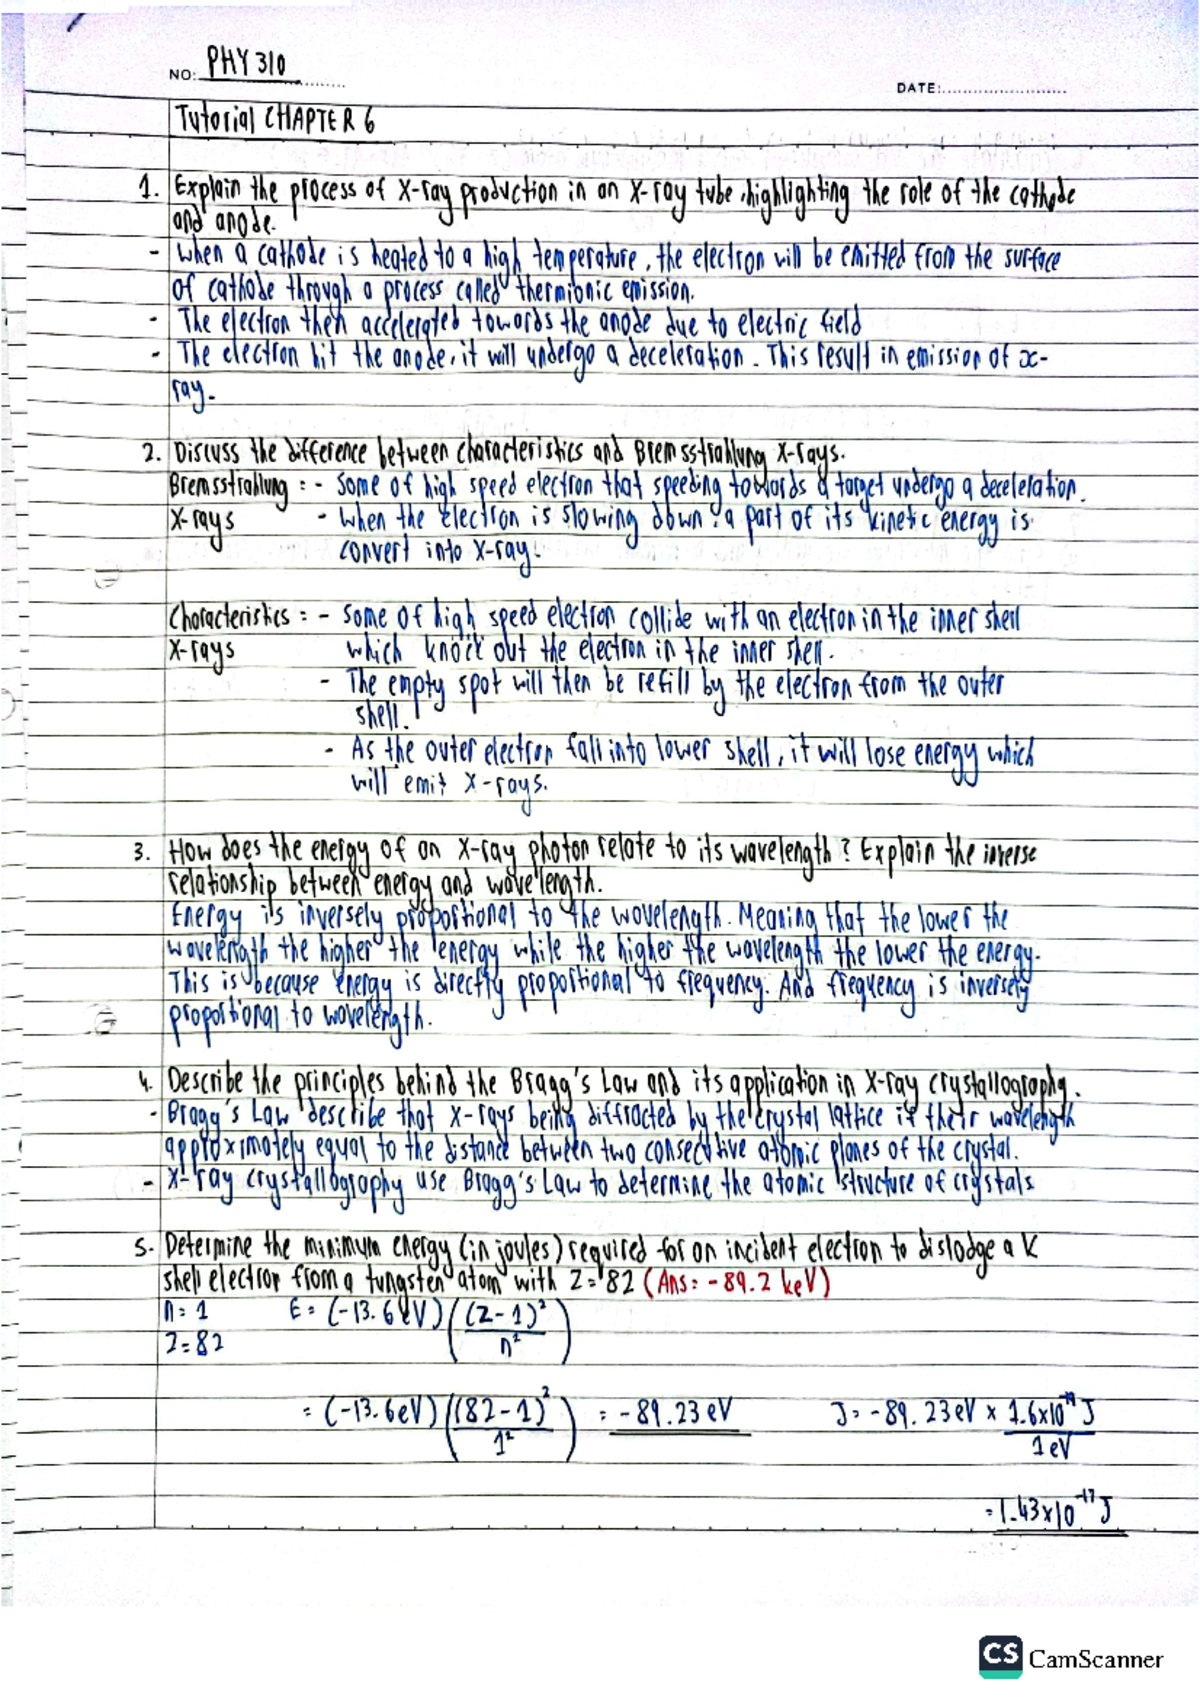 NO: PHY 310
DATE:
Tutorial CHAPTER 6
1. Explain the process of X-ray production in an X-ray tube, highlighting the role of the cathode
and anode.
- When a cathode is heated to a high temperature, the electron will be emitted from the surface
of cathode through a process called thermionic emission.
- The electron then accelerated towards the anode due to electric field
- The electron hit the anode, it will undergo a deceleration. This result in emission of x-
ray.
2. Discuss the difference between characteristics and Bremsstrahlung X-rays.
Bremsstrahlung : - Some of high speed electron that speeding towards a target undergo a deceleration.
X-rays - When the electron is slowing down, a part of its kinetic energy is
convert into X-ray.
Characteristics : - Some of high speed electron collide with an electron in the inner shell
X-rays which knock out the electron in the inner shell.
- The empty spot will then be refill by the electron from the outer
shell.
- As the outer electron fall into lower shell, it will lose energy which
will emit X-rays.
3. How does the energy of an X-ray photon relate to its wavelength? Explain the inverse
relationship between energy and wavelength.
Energy is inversely proportional to the wavelength. Meaning that the lower the
wavelength the higher the energy while the higher the wavelength the lower the energy.
This is because energy is directly proportional to frequency. And frequency is inversely
proportional to wavelength.
4. Describe the principles behind the Bragg's Law and its application in X-ray crystallography.
- Bragg's Law describe that X-rays being diffracted by the crystal lattice if their wavelength
approximately equal to the distance between two consecutive atomic planes of the crystal.
- X-ray crystallography use Bragg's Law to determine the atomic structure of crystals
5. Determine the minimum energy (in joules) required for an incident electron to dislodge a K
shell electron from a tungsten atom with Z = 82 (Ans: -89.2 keV)
n = 1 E = (-13.6 eV) ((Z-1)² / n²)
Z = 82
= (-13.6eV) ((82-1)² / 1²) = -89.23 eV J = -89.23eV × 1.6x10⁻¹⁹ J / 1eV
= 1.43x10⁻¹⁷ J
CS CamScanner